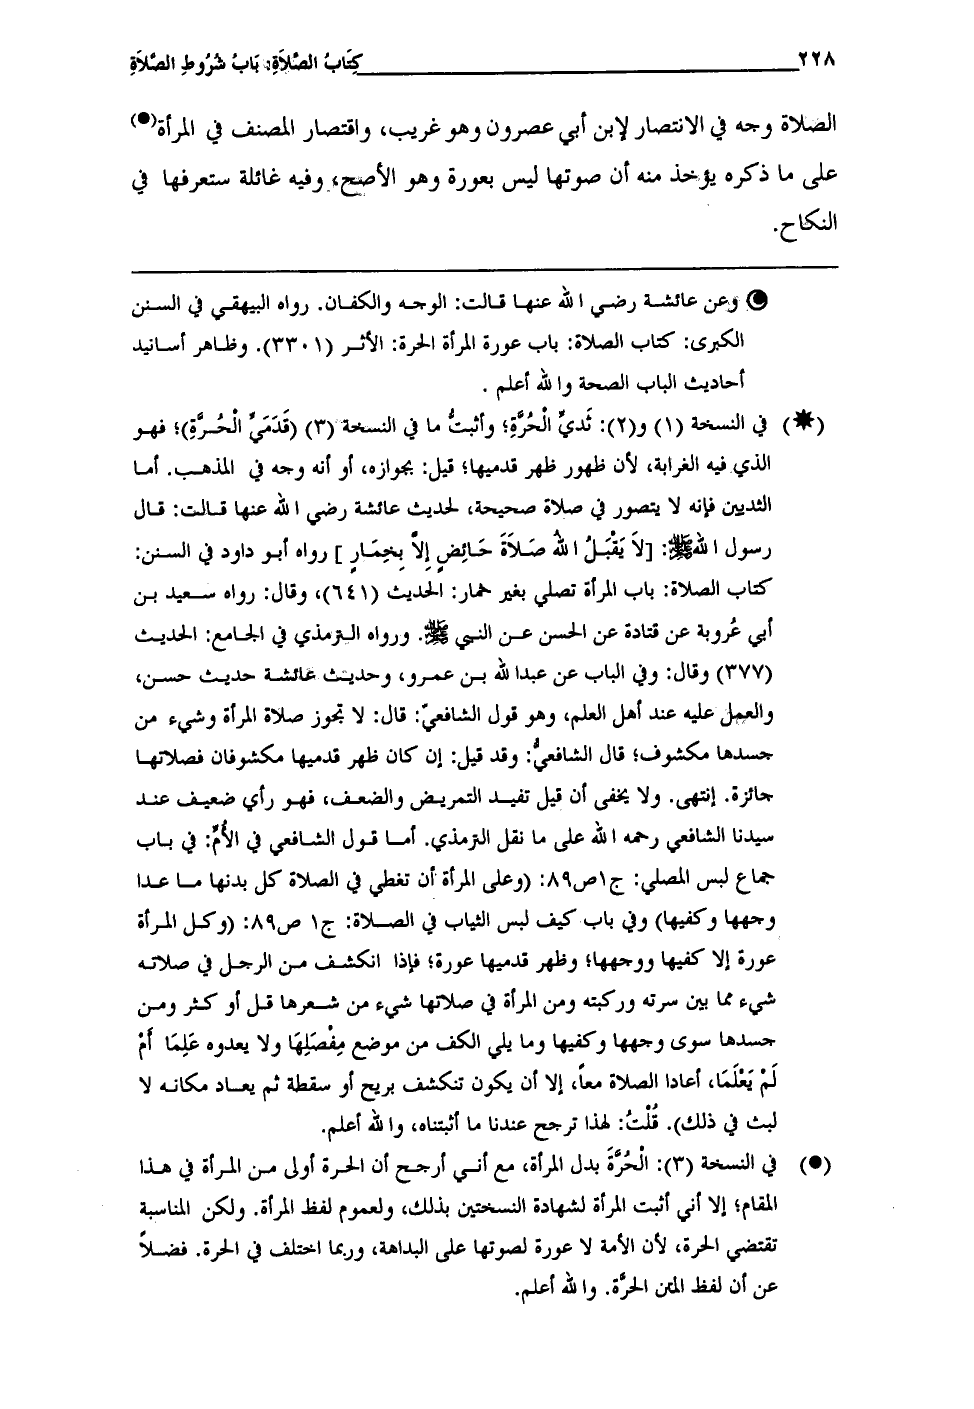 ٢٢٨ كِتَابُ الصَّلاَةِ: بَابُ شُرُوطِ الصَّلاَةِ
الصلاة وجه في الانتصار لإبن أبي عصرون وهو غريب، واقتصار المصنف في المرأة(●)
على ما ذكره يؤخذ منه أن صوتها ليس بعورة وهو الأصح، وفيه غائلة ستعرفها في
النكاح.
وعن عائشة رضي الله عنها قالت: الوجه والكفان. رواه البيهقي في السنن
الكبرى: كتاب الصلاة: باب عورة المرأة الحرة: الأثر (٣٣٠١). وظاهر أسانيد
أحاديث الباب الصحة والله أعلم .
(*) في النسخة (١) و(٢): ثَديِّ الْحُرَّةِ؛ وأثبتُّ ما في النسخة (٣) (قَدَمَيِّ الْحُرَّةِ)؛ فهو
الذي فيه الغرابة، لأن ظهور ظهر قدميها؛ قيل: بجوازه، أو أنه وجه في المذهب. أما
الثديين فإنه لا يتصور في صلاة صحيحة، لحديث عائشة رضي الله عنها قالت: قال
رسول الله ﷺ: [لاَ يَقْبَلُ اللهُ صَلاَةَ حَائِضٍ إِلاَّ بِخِمَارٍ ] رواه أبو داود في السنن:
كتاب الصلاة: باب المرأة تصلي بغير خمار: الحديث (٦٤١)، وقال: رواه سعيد بن
أبي عُروبة عن قتادة عن الحسن عن النبي ﷺ. ورواه الترمذي في الجامع: الحديث
(٣٧٧) وقال: وفي الباب عن عبدالله بن عمرو، وحديث عائشة حديث حسن،
والعمل عليه عند أهل العلم، وهو قول الشافعيّ: قال: لا تجوز صلاة المرأة وشيء من
جسدها مكشوف؛ قال الشافعيُّ: وقد قيل: إن كان ظهر قدميها مكشوفان فصلاتها
جائزة. إنتهى. ولا يخفى أن قيل تفيد التمريض والضعف، فهو رأي ضعيف عند
سيدنا الشافعي رحمه الله على ما نقل الترمذي. أما قول الشافعي في الأُمِّ: في باب
جماع لبس المصلي: ج١ص٨٩: (وعلى المرأة أن تغطي في الصلاة كل بدنها ما عدا
وجهها وكفيها) وفي باب كيف لبس الثياب في الصلاة: ج١ ص٨٩: (وكل المرأة
عورة إلا كفيها ووجهها؛ وظهر قدميها عورة؛ فإذا انكشف من الرجل في صلاته
شيء مما بين سرته وركبته ومن المرأة في صلاتها شيء من شعرها قل أو كثر ومن
جسدها سوى وجهها وكفيها وما يلي الكف من موضع مِفْصَلِهَا ولا يعدوه عَلِمَا أَمْ
لَمْ يَعْلَمَا، أعادا الصلاة معاً، إلا أن يكون تنكشف بريح أو سقطة ثم يعاد مكانه لا
لبث في ذلك). قُلْتُ: لهذا ترجح عندنا ما أثبتناه، والله أعلم.
(●) في النسخة (٣): الْحُرَّةَ بدل المرأة، مع أنـي أرجح أن الحرة أولى من المرأة في هذا
المقام؛ إلا أني أثبت المرأة لشهادة النسختين بذلك، ولعموم لفظ المرأة. ولكن المناسبة
تقتضي الحرة، لأن الأمة لا عورة لصوتها على البداهة، وربما اختلف في الحرة. فضلاً
عن أن لفظ المتن الحرَّة. والله أعلم.